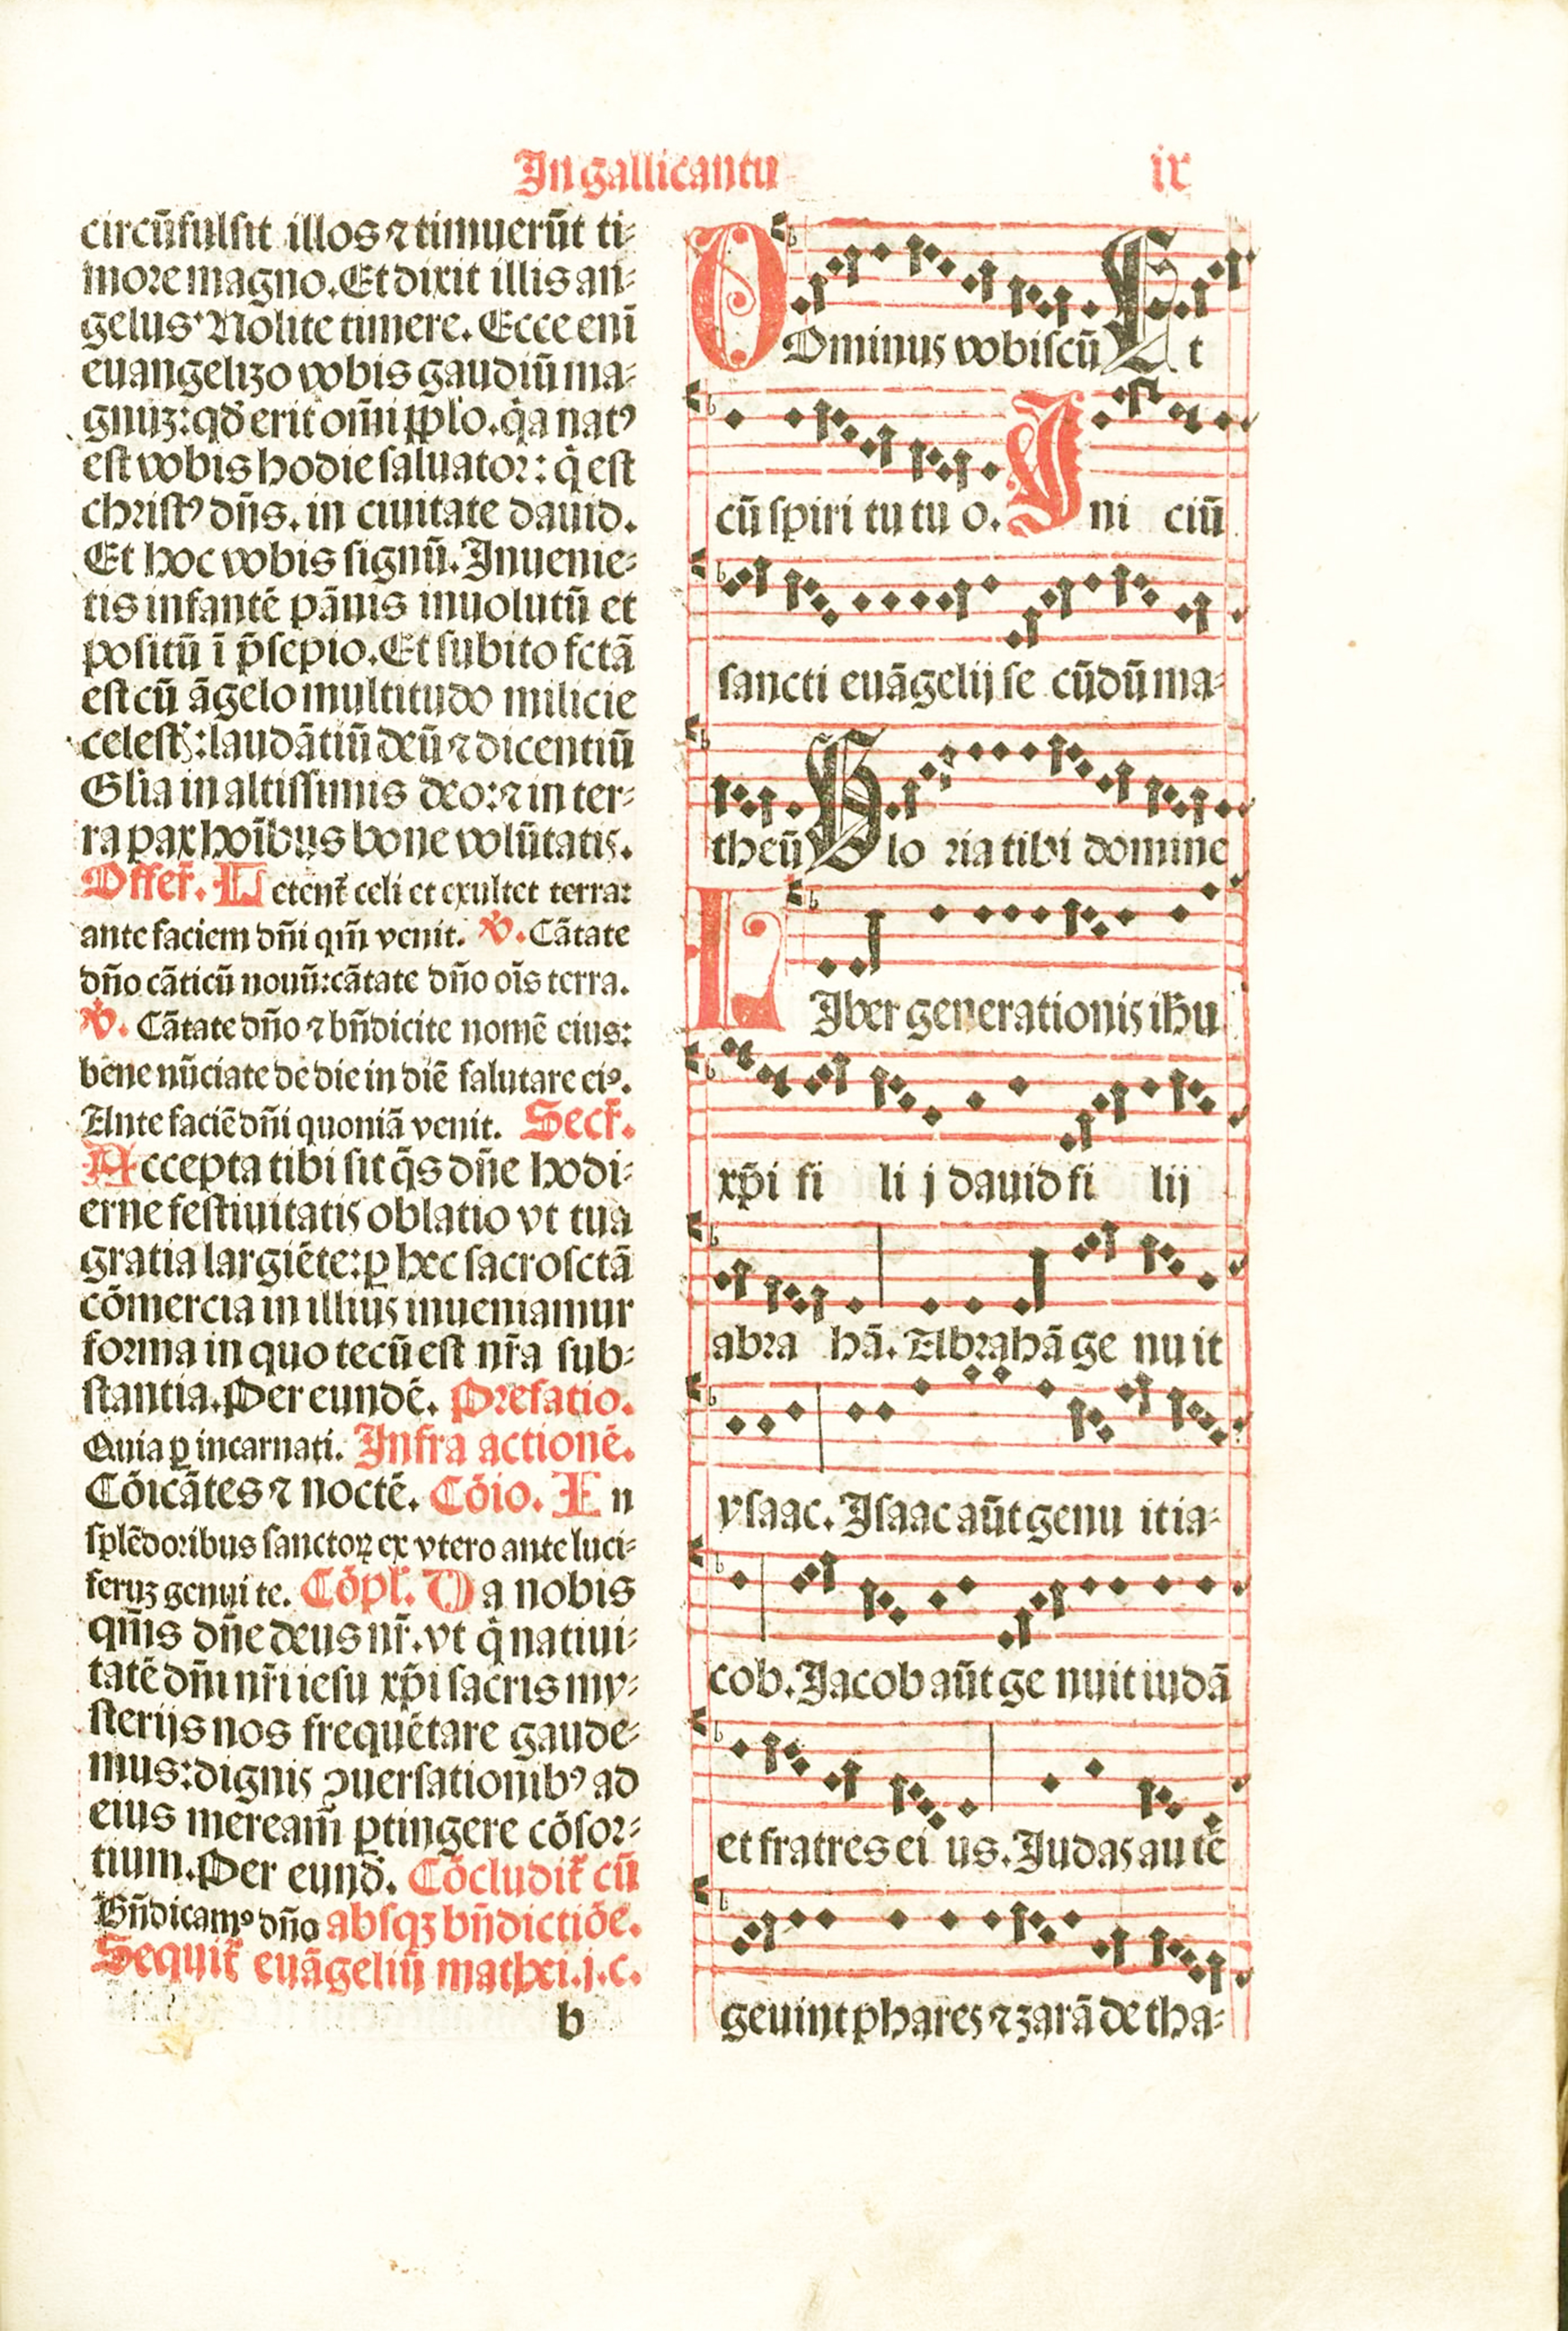 In gallicantu ix
circũfulsit illos ⁊ timuerũt ti⸗
more magno. Et dixit illis an⸗
gelus Nolite timere. Ecce enĩ
euangelizo vobis gaudiũ ma⸗
gnuʒ: qd̄ erit om̄i pp̄lo. q̇a natꝰ
est vobis hodie saluator: q̇ est
christꝰ dñs. in ciuitate dauid.
Et hoc vobis signũ. Inuenie⸗
tis infantẽ pãnis inuolutũ et
positũ ĩ p̃sepio. Et subito fctã
est cũ ãgelo multitudo milicie
celestꝭ: laudãtiũ deũ ⁊ dicentiũ
Glĩa in altissimis deo: ⁊ in ter⸗
ra pax hoĩbus bone volũtatis.
Offer̃. Letent̃ celi et exultet terra:
ante faciem dñi qm̃ venit. ℣. Cãtate
dño cãticũ nouũ: cãtate dño oĩs terra.
℣. Cãtate dño ⁊ bñdicite nomẽ eius:
bene nũciate de die in diẽ salutare eiꝰ.
Ante faciẽ dñi quoniã venit. Secr̃.
Accepta tibi sit q̃s dñe hodi⸗
erne festiuitatis oblatio vt tua
gratia largiẽte: ꝑ hec sacrosctã
cõmercia in illius inueniamur
forma in quo tecũ est nr̃a sub⸗
stantia. Per eundẽ. Prefatio.
Quia ꝑ incarnati. Infra actionẽ.
Cõicãtes ⁊ noctẽ. Cõio. In
splẽdoribus sanctoꝝ ex vtero ante luci⸗
feruʒ genui te. Cõpl̃. Da nobis
qm̃s dñe deus nr̃. vt q̇ natiui⸗
tatẽ dñi nr̃i iesu xp̃i sacris my⸗
sterijs nos frequẽtare gaude⸗
mus: dignis ꝯuersationibꝰ ad
eius meream̃ ꝑtingere cõsor⸗
tium. Per eund̃. Cõcludit̃ cũ
Bñdicamꝰ dño absqʒ bñdictiõe.
Sequit̃ euãgeliũ mathei. j. c.
b
DOminus vobiscũ Et
cũ spiri tu tu o. Ini ciũ
sancti euãgelij se cũdũ ma⸗
theũ Glo ria tibi domine
LIber generationis ihũ
xp̃i fi li j dauid fi lij
abra hã. Abrahã ge nu it
ysaac. Isaac aũt genu it ia⸗
cob. Jacob aũt ge nuit iudã
et fratres ei us. Judas au tẽ
geuint phares ⁊ zarã de tha⸗